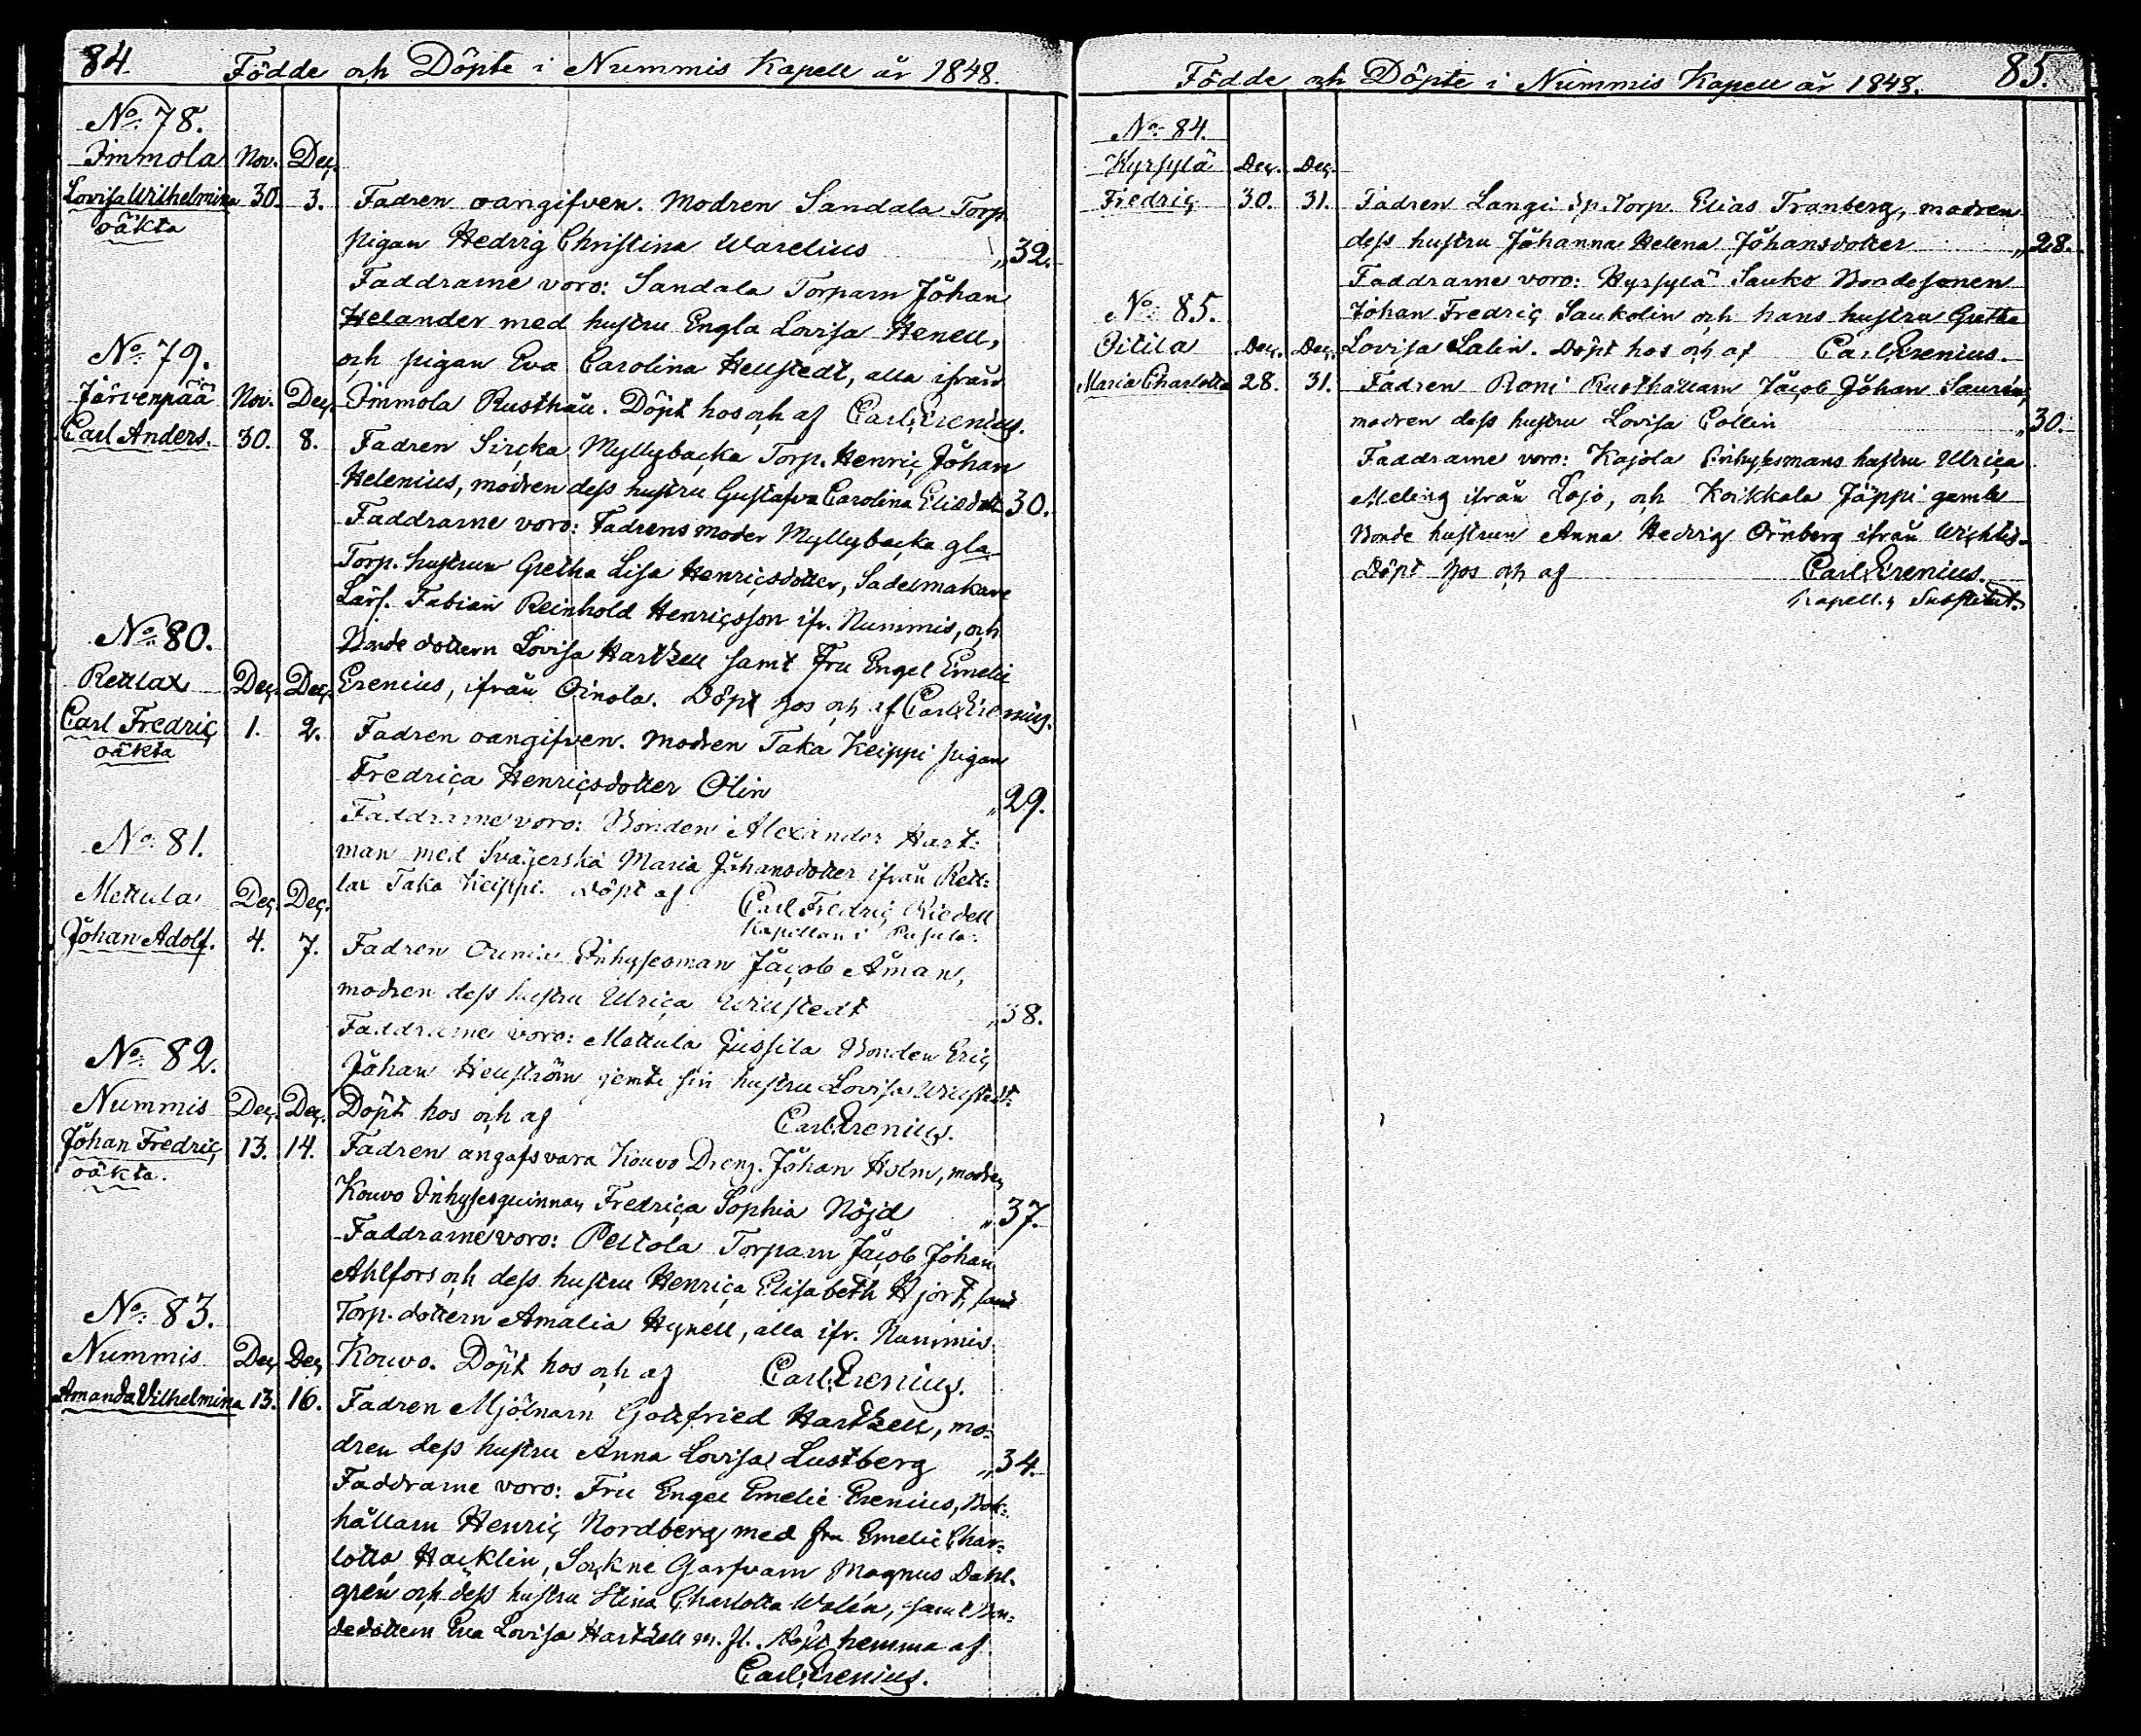 84. Födde och Döpte i Nummis Kapell år 1848.
No. 78.
Immola Nov. Dec.
Lovisa Wilhelmina 30. 3. Fadren oangifven. Modren Sandala Torp.
oäkta
pigan Hedvig Christina Warelius „ 32.
Faddrarne voro: Sandala Torparn Johan
Helander med hustru Engla Lovisa Henell,
No. 79.
och pigan Eva Carolina Hellstedt, alla ifrån
Järvenpää Nov. Dec. Immola Rusthåll. Döpt hos och af Carl Erenius.
Carl Anders. 30. 8. Fadren Sircka Myllybacka Torp. Henric Johan
Helenius, modren dess hustru Gustafva Carolina Eliædott. 30.
Faddrarne voro: Fadrens moder Myllybacka gla
Torp. hustrun Gretha Lisa Henricsdotter, Sadelmakare
Lärl. Fabian Reinhold Henricsson ifr. Nummis, och
No. 80.
Bonde dottern Lovisa Hartzell samt Fru Engel Emelie
Rettlax Dec. Dec. Erenius, ifrån Oinola. Döpt hos och af Carl Erenius.
Carl Fredric 1. 2. Fadren oangifven. Modren Taka Keippi pigan
oäkta
Fredrica Henricsdotter Olin „ 29.
Faddrarne voro: Bonden Alexander Hart-
No. 81.
man med Svägerska Maria Johansdotter ifrån Rett-
lax Taka Keippi. Döpt af Carl Fredric Riedell
Kapellan i Pusula.
Mettula Dec. Dec.
Johan Adolf. 4. 7. Fadren Inhysesman Jacob Åman,
modren dess hustru Ulrica Willstedt „ 38.
Faddrarne voro: Mettula Jussila Bonden Eric
No. 82.
Johan Hellström jemte sin hustru Lovisa Willstedt.
Nummis Dec. Dec. Döpt hos och af Carl Erenius.
Johan Fredric 13. 14. Fadren angafs vara Kouvo Dreng. Johan Holm, modren
oäkta.
Kouvo Inhysesquinnan Fredrica Sophia Nöjd „ 37.
Faddrarne voro: Peltola Torparn Jacob Johan
Ahlfors och dess hustru Henrica Elisabeth Hjort, samt
No. 83.
Torp. dottern Amalia Hynell, alla ifr. Nummis
Nummis Dec. Dec. Kouvo. Döpt hos och af Carl Erenius.
Amanda Vilhelmina 13. 16. Fadren Mjölnarn Gottfried Hartzell, mo-
dren dess hustru Anna Lovisa Lustberg „ 34.
Faddrarne voro: Fru Engel Emelie Erenius, Bok-
hållarn Henric Nordberg med fru Emelie Char-
lotta Hacklin, Sockne Garfvarn Magnus Dahl-
grén och dess hustru Stina Charlotta Walén, samt Bon-
dedottern Eva Lovisa Hartzell m. fl. Döpt hemma af
Carl Erenius.
Födde och Döpte i Nummis Kapell år 1848. 85.
No. 84.
Hyrsylä Dec. Dec.
Fredric 30. 31. Fadren Langi Sp. Torp. Elias Tranberg, modren
dess hustru Johanna Helena Johansdotter „ 28.
Faddrarne voro: Hyrsylä Sauko Bondesonen
No. 85.
Johan Fredric Saukolin och hans hustru Gretha
Oitila Dec. Dec. Lovisa Salin. Döpt hos och af Carl Erenius.
Maria Charlotta 28. 31. Fadren Roni Rusthållarn Jacob Johan Saurén,
modren dess hustru Lovisa Collin „ 30.
Faddrarne voro: Kajola Inhysesmans hustru Ulrica
Meling ifrån Lojo, och Koikkala Jäppi gamle
Bonde hustrun Anna Hedvig Örnberg ifrån Wichtis.
Döpt hos och af Carl Erenius.
Kapell. Substitut.